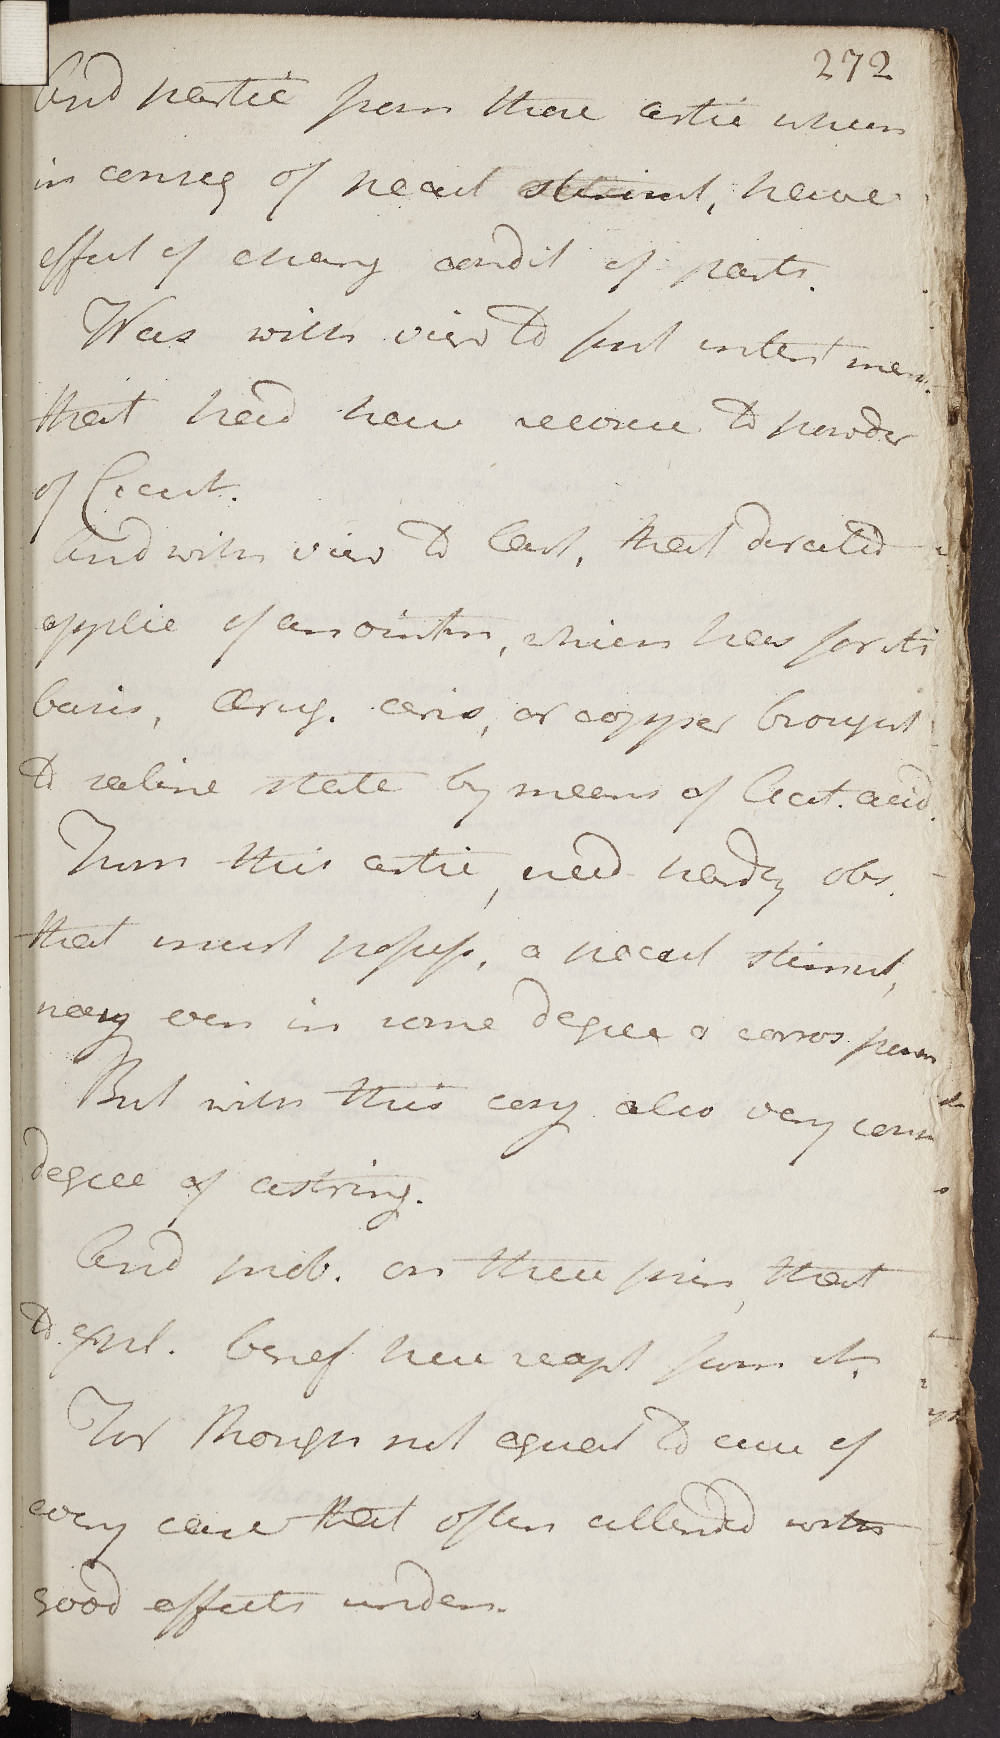 272
And partic from those artic when
in conseq of pecul stimul, have
effect of chang condit of parts.
Was with view to first intent men
that had here recourse to powder
of Cicut.
And with view to last, that directed
applic of an ointm, which has for its
basis, Ærug. æris, or copper brought
to saline state by means of Acet. acid.
From this artic, need hardly obs.
that must possess, a pecul stimul,
nay even in some degree a corros power
But with this conj also very cons
degree of astring.
And prob. on these prin, that
to expl. benef here reapt from it.
For though not equal to cure of
every case that often attended with
good effects under.